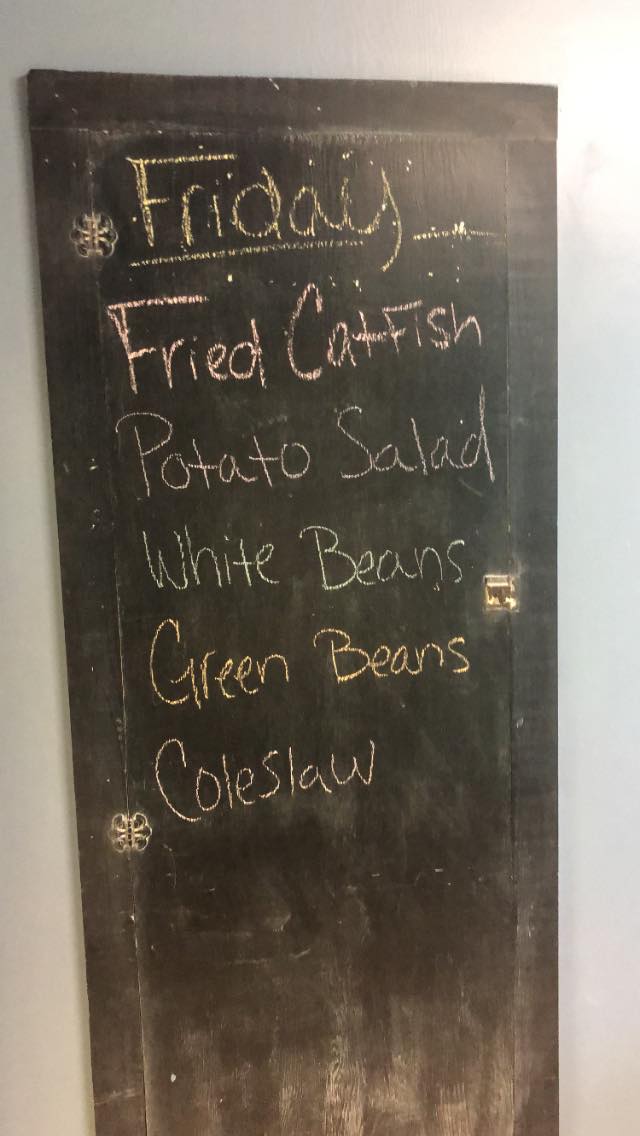 Friday
Fried Catfish
Potato Salad
White Beans
Green Beans
Coleslaw